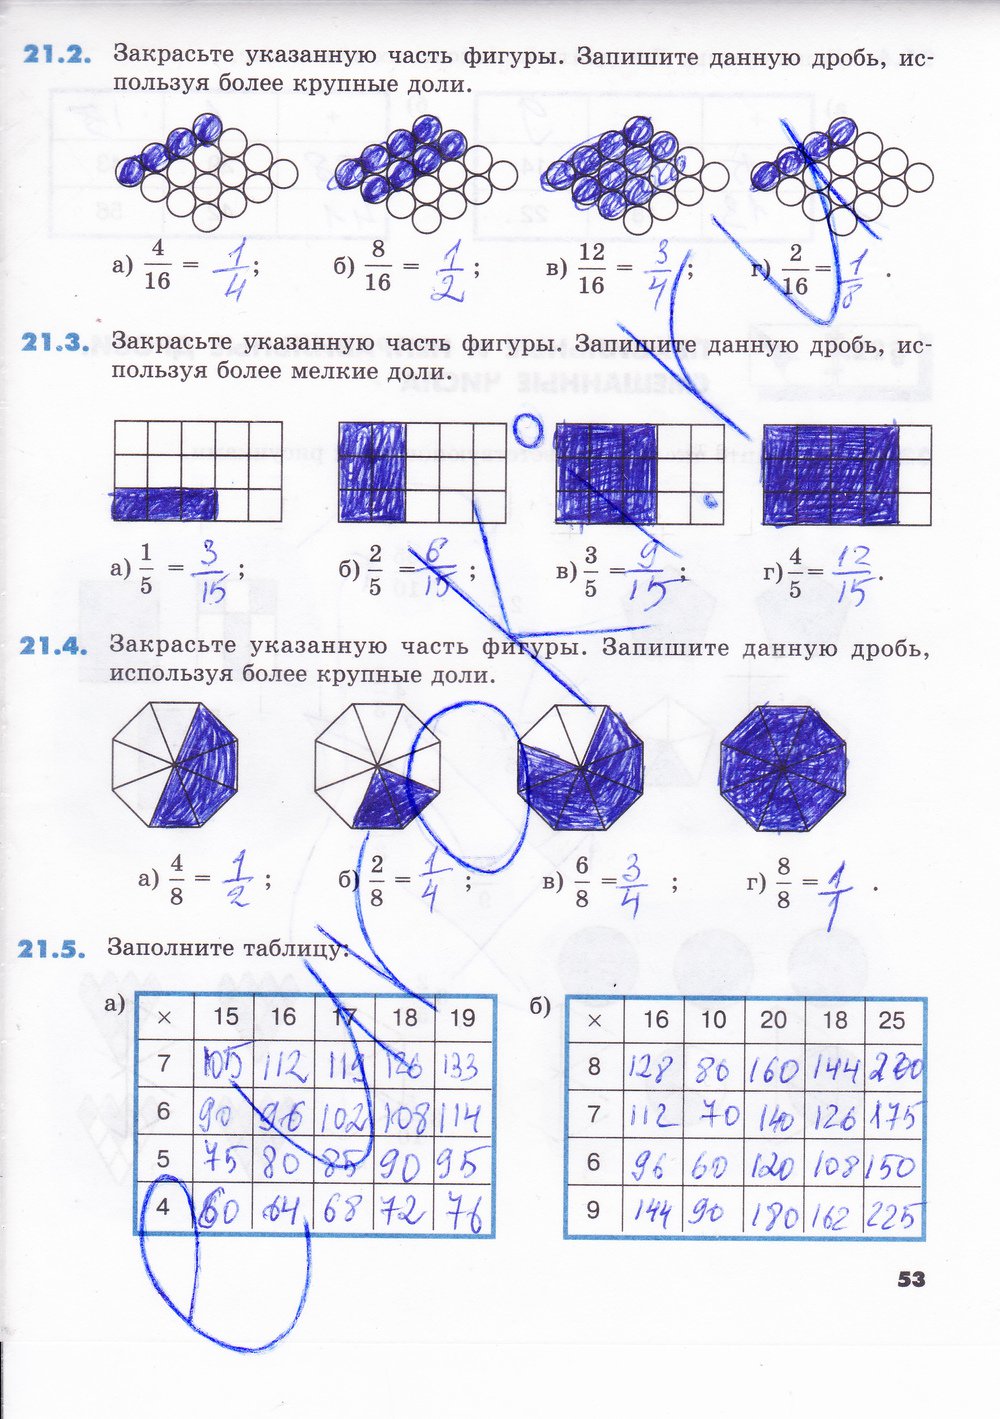 21.2. Закрасьте указанную часть фигуры. Запишите данную дробь, ис-
пользуя более крупные доли.
а) 4/16 = 1/4; б) 8/16 = 1/2; в) 12/16 = 3/4; г) 2/16 = 1/8.
21.3. Закрасьте указанную часть фигуры. Запишите данную дробь, ис-
пользуя более мелкие доли.
а) 1/5 = 3/15; б) 2/5 = 6/15; в) 3/5 = 9/15; г) 4/5 = 12/15.
21.4. Закрасьте указанную часть фигуры. Запишите данную дробь,
используя более крупные доли.
а) 4/8 = 1/2; б) 2/8 = 1/4; в) 6/8 = 3/4; г) 8/8 = 1/1.
21.5. Заполните таблицу:
а) × 15 16 17 18 19
7 105 112 119 126 133
6 90 96 102 108 114
5 75 80 85 90 95
4 60 64 68 72 76
б) × 16 10 20 18 25
8 128 80 160 144 200
7 112 70 140 126 175
6 96 60 120 108 150
9 144 90 180 162 225
53